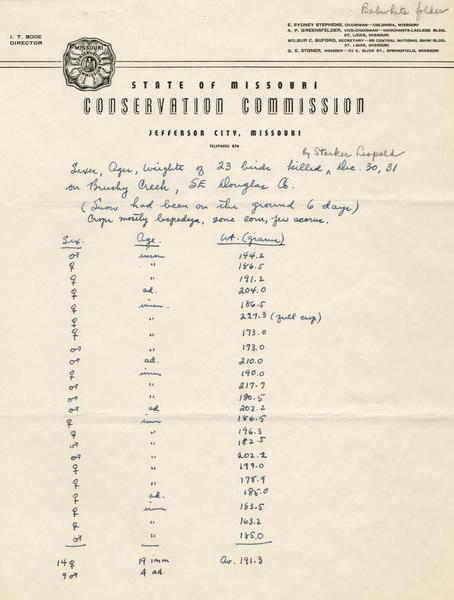 Bobwhite folder
I. T. BODE
DIRECTOR
E. SYDNEY STEPHENS, CHAIRMAN—COLUMBIA, MISSOURI
A. P. GREENSFELDER, VICE-CHAIRMAN—MERCHANTS-LACLEDE BLDG.
ST. LOUIS, MISSOURI
WILBUR C. BUFORD, SECRETARY— CENTRAL NATIONAL BANK BLDG.
ST. LOUIS, MISSOURI
G. E. STONER, MEMBER— E. OLIVE ST., SPRINGFIELD, MISSOURI
MISSOURI
STATE OF MISSOURI
CONSERVATION COMMISSION
JEFFERSON CITY, MISSOURI
TELEPHONE 574
by Starker Leopold
Sexes, Ages, Weights of 23 birds killed ^ Dec. 30, 31
on Brushy Creek, SE Douglas Co.
(Snow had been on the ground 6 days)
Crops mostly lespedeza, some corn, few acorns.
Sex. Age. Wt. (grams)
♂ imm 194.2
♀ " 186.5
♀ " 191.2
♀ ad. 204.0
♀ imm. 186.5
♀ " 227.3 (full crop)
♀ " 173.0
♂ " 173.0
♂ ad. 210.0
♀ imm 190.0
♂ " 217.7
♂ " 180.5
♂ ad 202.2
♀ imm 186.5
♀ " 196.3
♂ " 182.5
♂ " 202.2
♀ " 199.0
♀ " 178.9
♀ ad. 185.0
♀ imm 183.5
♀ " 163.2
♂ " 185.0
14 ♀ 19 imm Av. 191.3
9 ♂ 4 ad.